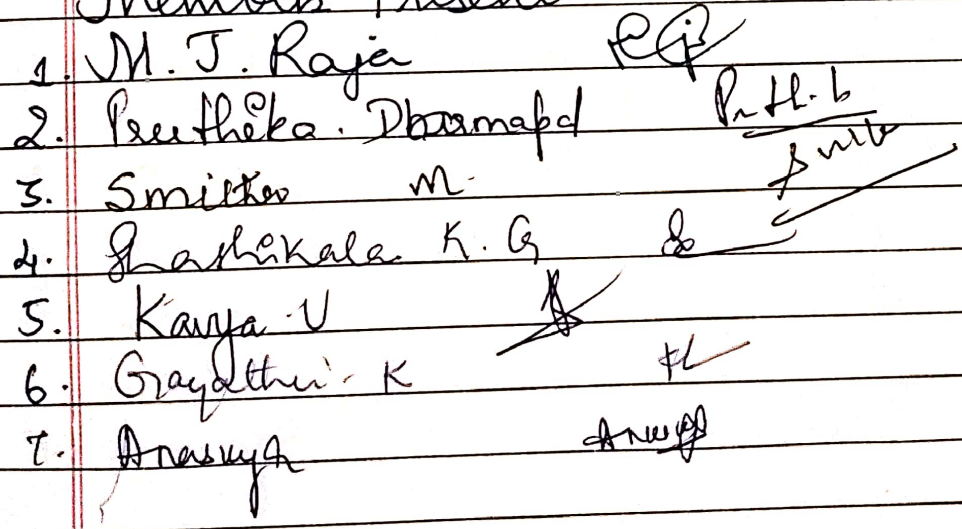 Members Present
1. M. J. Raja
2. Preethika. Dharmapal Prth.b
3. Smitha M. Smita
4. Shashikala K. G
5. Kavya. U
6. Gayathri. K
7. Anasuya